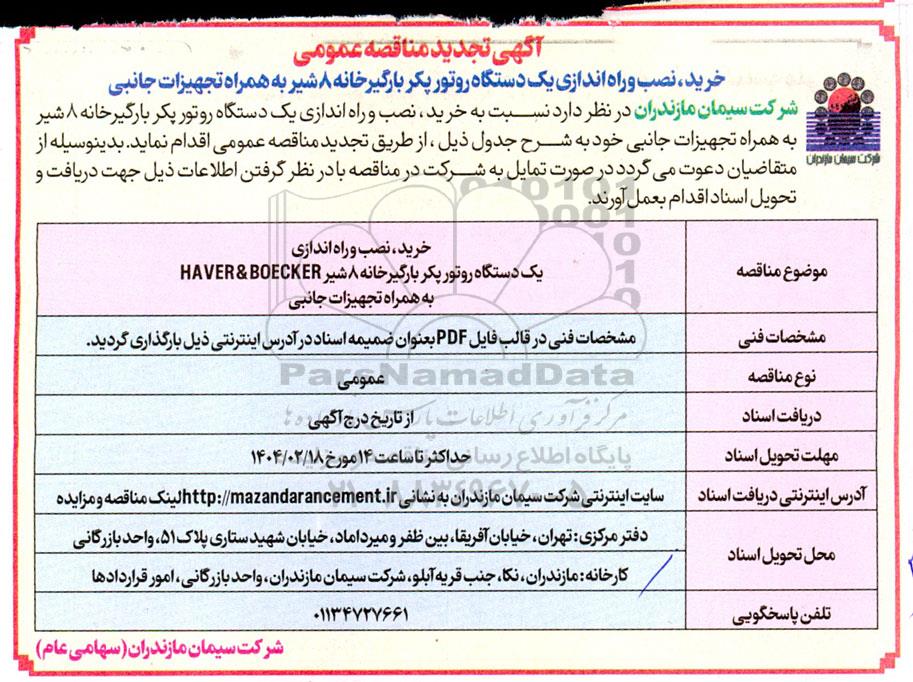 آگهی تجدید مناقصه عمومی
خرید، نصب و راه اندازی یک دستگاه روتور پکر بارگیرخانه ۸ شیر به همراه تجهیزات جانبی
شرکت سیمان مازندران در نظر دارد نسبت به خرید، نصب و راه اندازی یک دستگاه روتور پکر بارگیرخانه ۸ شیر
به همراه تجهیزات جانبی خود به شرح جدول ذیل، از طریق تجدید مناقصه عمومی اقدام نماید. بدینوسیله از
متقاضیان دعوت می گردد در صورت تمایل به شرکت در مناقصه با در نظر گرفتن اطلاعات ذیل جهت دریافت و
تحویل اسناد اقدام بعمل آورند.
شرکت سیمان مازندران
موضوع مناقصه
خرید، نصب و راه اندازی
یک دستگاه روتور پکر بارگیرخانه ۸ شیر HAVER & BOECKER
به همراه تجهیزات جانبی
مشخصات فنی
مشخصات فنی در قالب فایل PDF بعنوان ضمیمه اسناد در آدرس اینترنتی ذیل بارگذاری گردید.
نوع مناقصه
عمومی
ParsNamadData
دریافت اسناد
از تاریخ درج آگهی
مهلت تحویل اسناد
حداکثر تا ساعت ۱۴ مورخ ۱۴۰۴/۰۲/۱۸
آدرس اینترنتی دریافت اسناد
سایت اینترنتی شرکت سیمان مازندران به نشانی http://mazandarancement.ir لینک مناقصه و مزایده
محل تحویل اسناد
دفتر مرکزی: تهران، خیابان آفریقا، بین ظفر و میرداماد، خیابان شهید ستاری پلاک ۵۱، واحد بازرگانی
کارخانه: مازندران، نکا، جنب قریه آبلو، شرکت سیمان مازندران، واحد بازرگانی، امور قراردادها
تلفن پاسخگویی
۰۱۱۳۴۷۲۷۶۶۱
شرکت سیمان مازندران (سهامی عام)